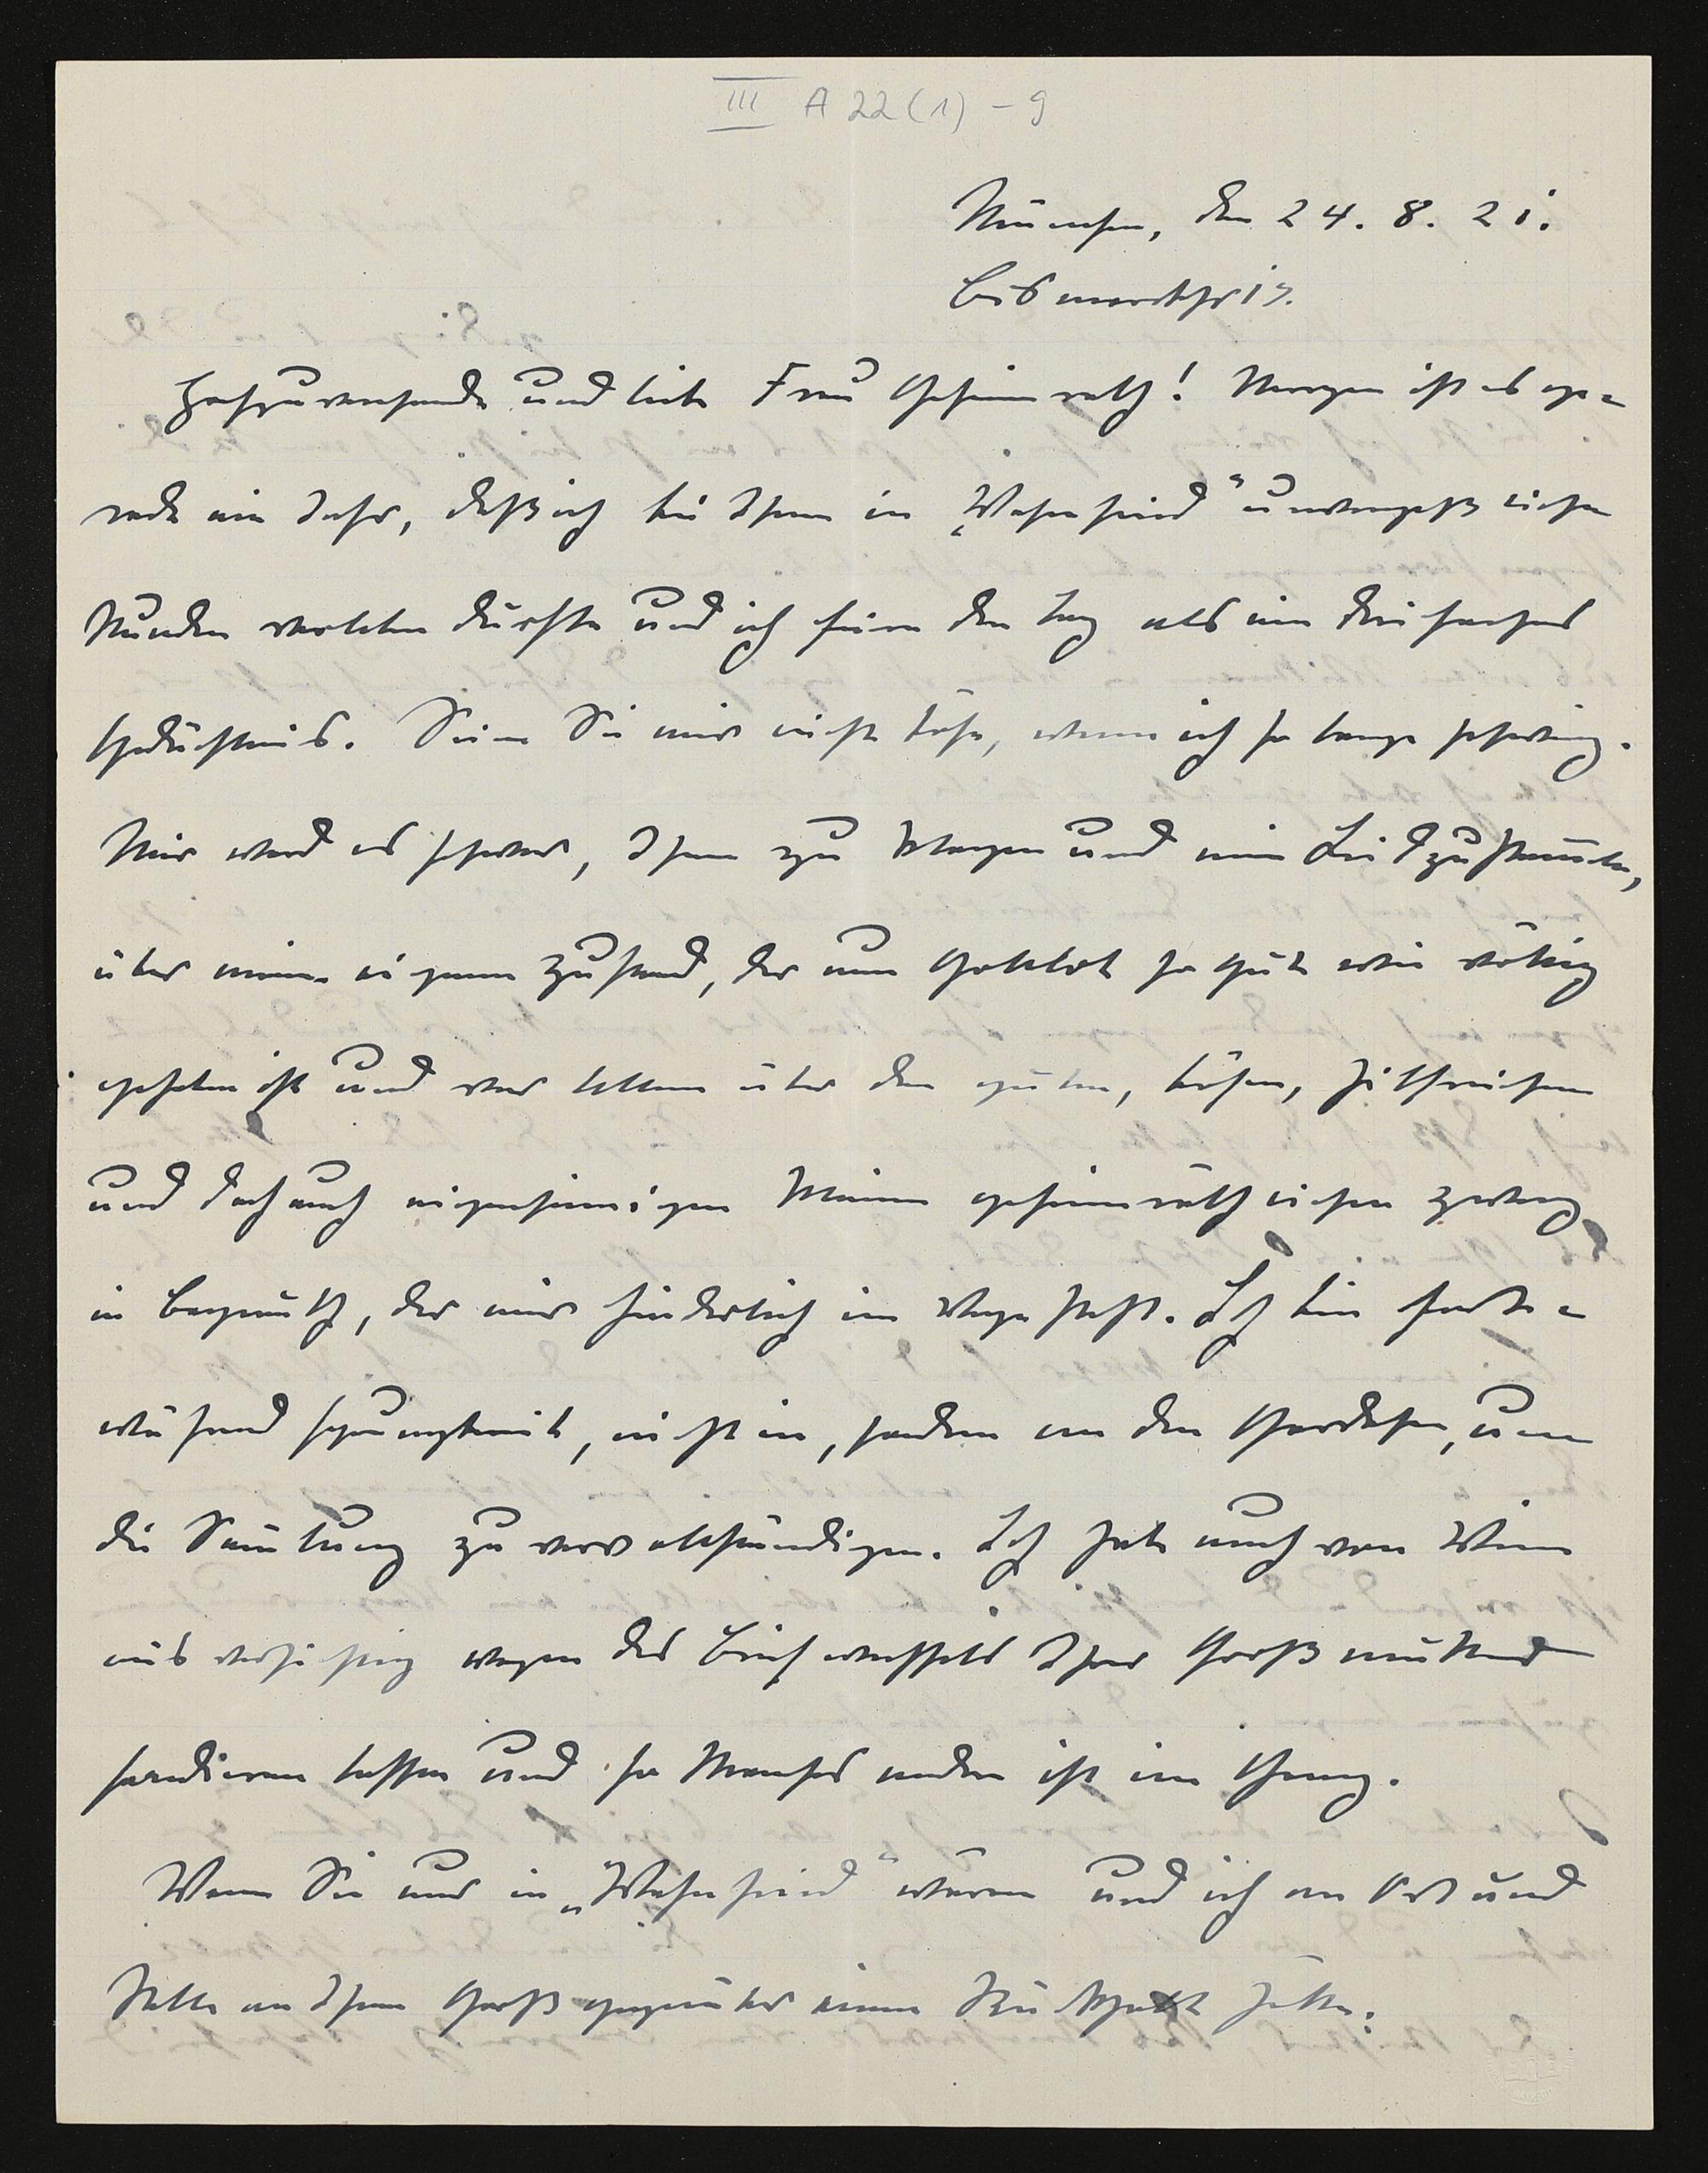 III A 22 (1) - 9
München, den 24. 8. 21.
Bismarckstr 17.
Hochzuverehrende und liebe Frau Geheimrath! Morgen ist es ge=
rade ein Jahr, daß ich bei Ihnen in „Wahnfried" unvergeßliche
Stunden verleben durfte und ich feiere den Tag als ein dreifaches
Gedächtnis. Seien Sie mir nicht böse, wenn ich so lange schwieg.
Mir ward es schwer, Ihnen zu klagen und ein Leid zu
über meinen eigenen Zustand, der nun Gottlob so gut wie völlig
gehoben ist und vor allem über den guten, bösen, hilfreichen
und doch auch eigensinnigen kleinen geheimräthlichen Zwerg
in Bayreuth, der mir hinderlich im Wege steht. Ich bin forte=
während, nicht in, sondern an den, um
die Samlung zu vervollständigen. Ich habe auch von Wien
aus wegen des Briefwechsels Ihrer Großmutter
sondieren lassen und so Manches andere ist im Gang.
Wenn Sie nur in „Wahnfried" wären und ich an Ort und
Stelle an Ihnen Groß gegenüber einen Rückhalt hätte.